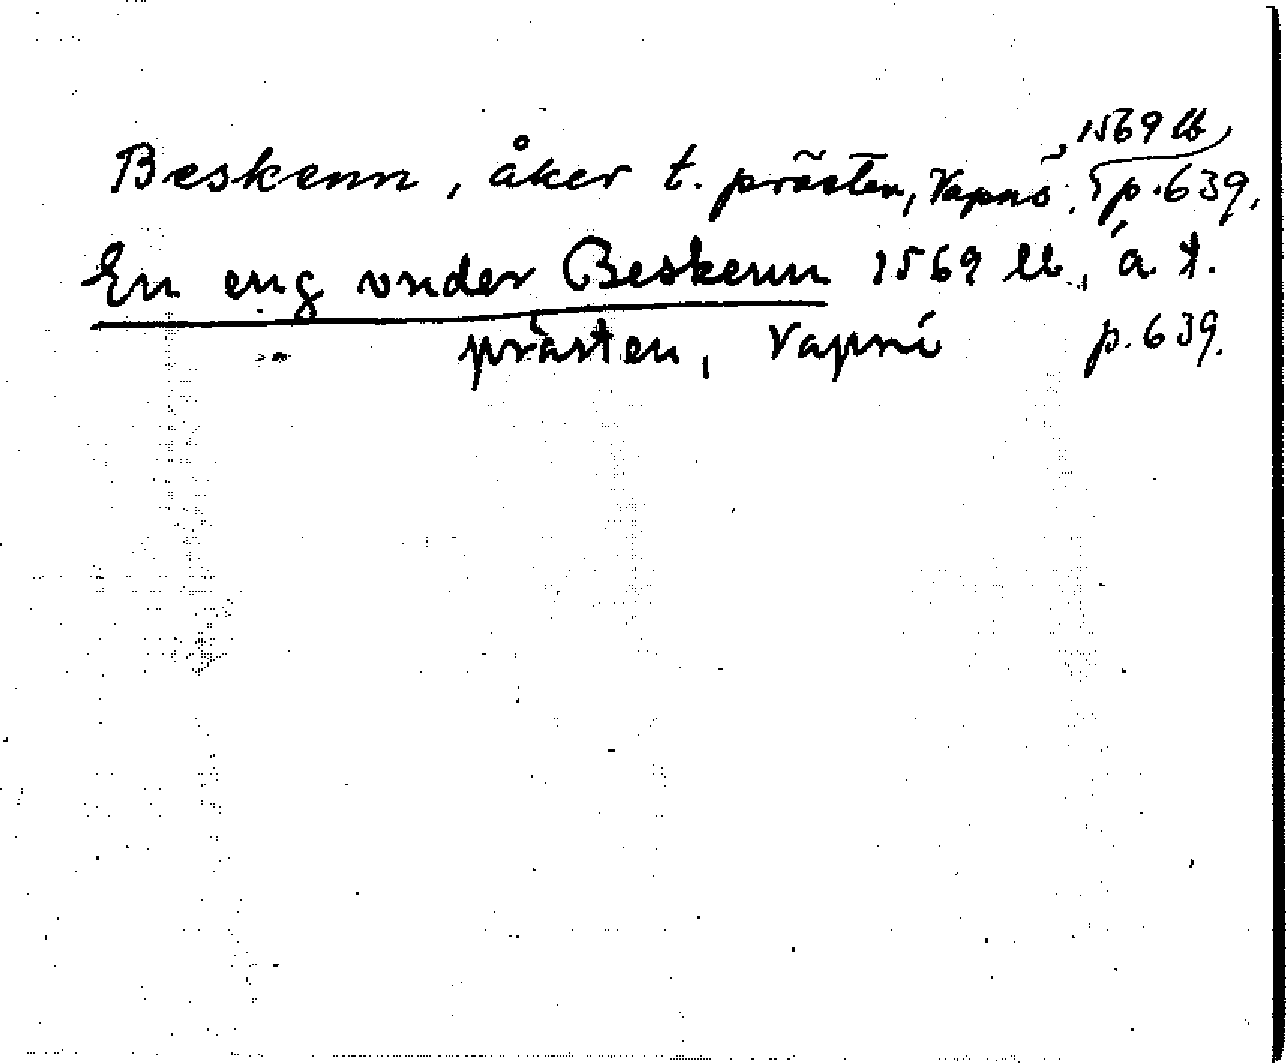 Beskenn, åker t. prästen, Vapnö, 1569 lb, p. 639.
En eng vnder Beskenn 1569 lb, å t.
prästen, Vapnö p. 639.